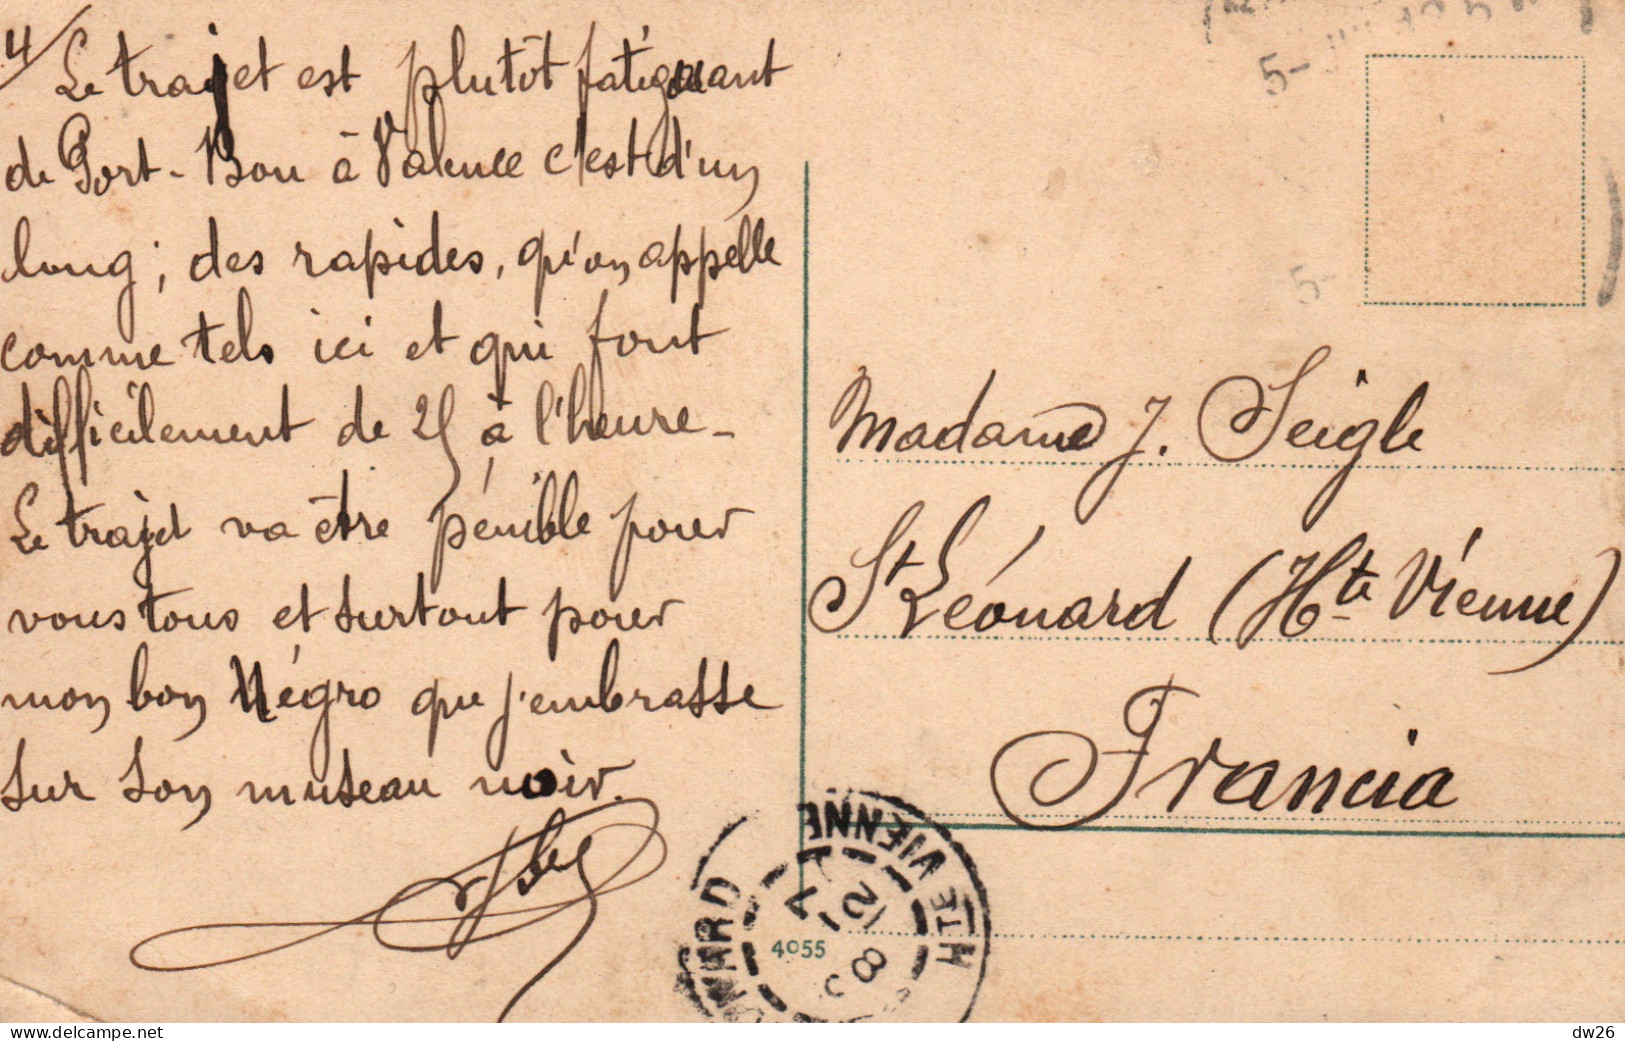 4/
Le trajet est plutôt fatiguant
de Port-Bou à Valence c'est d'un
long; des rapides, qu'on appelle
comme tels ici et qui font
difficilement de 25 à l'heure_
Le trajet va être pénible pour
vous tous et surtout pour
mon bon Négro que j'embrasse
sur son museau noir.
Madame J. Seigle
St Léonard (Hte Vienne)
Francia
HTE VIENNE
4055
5-
5-
dw26